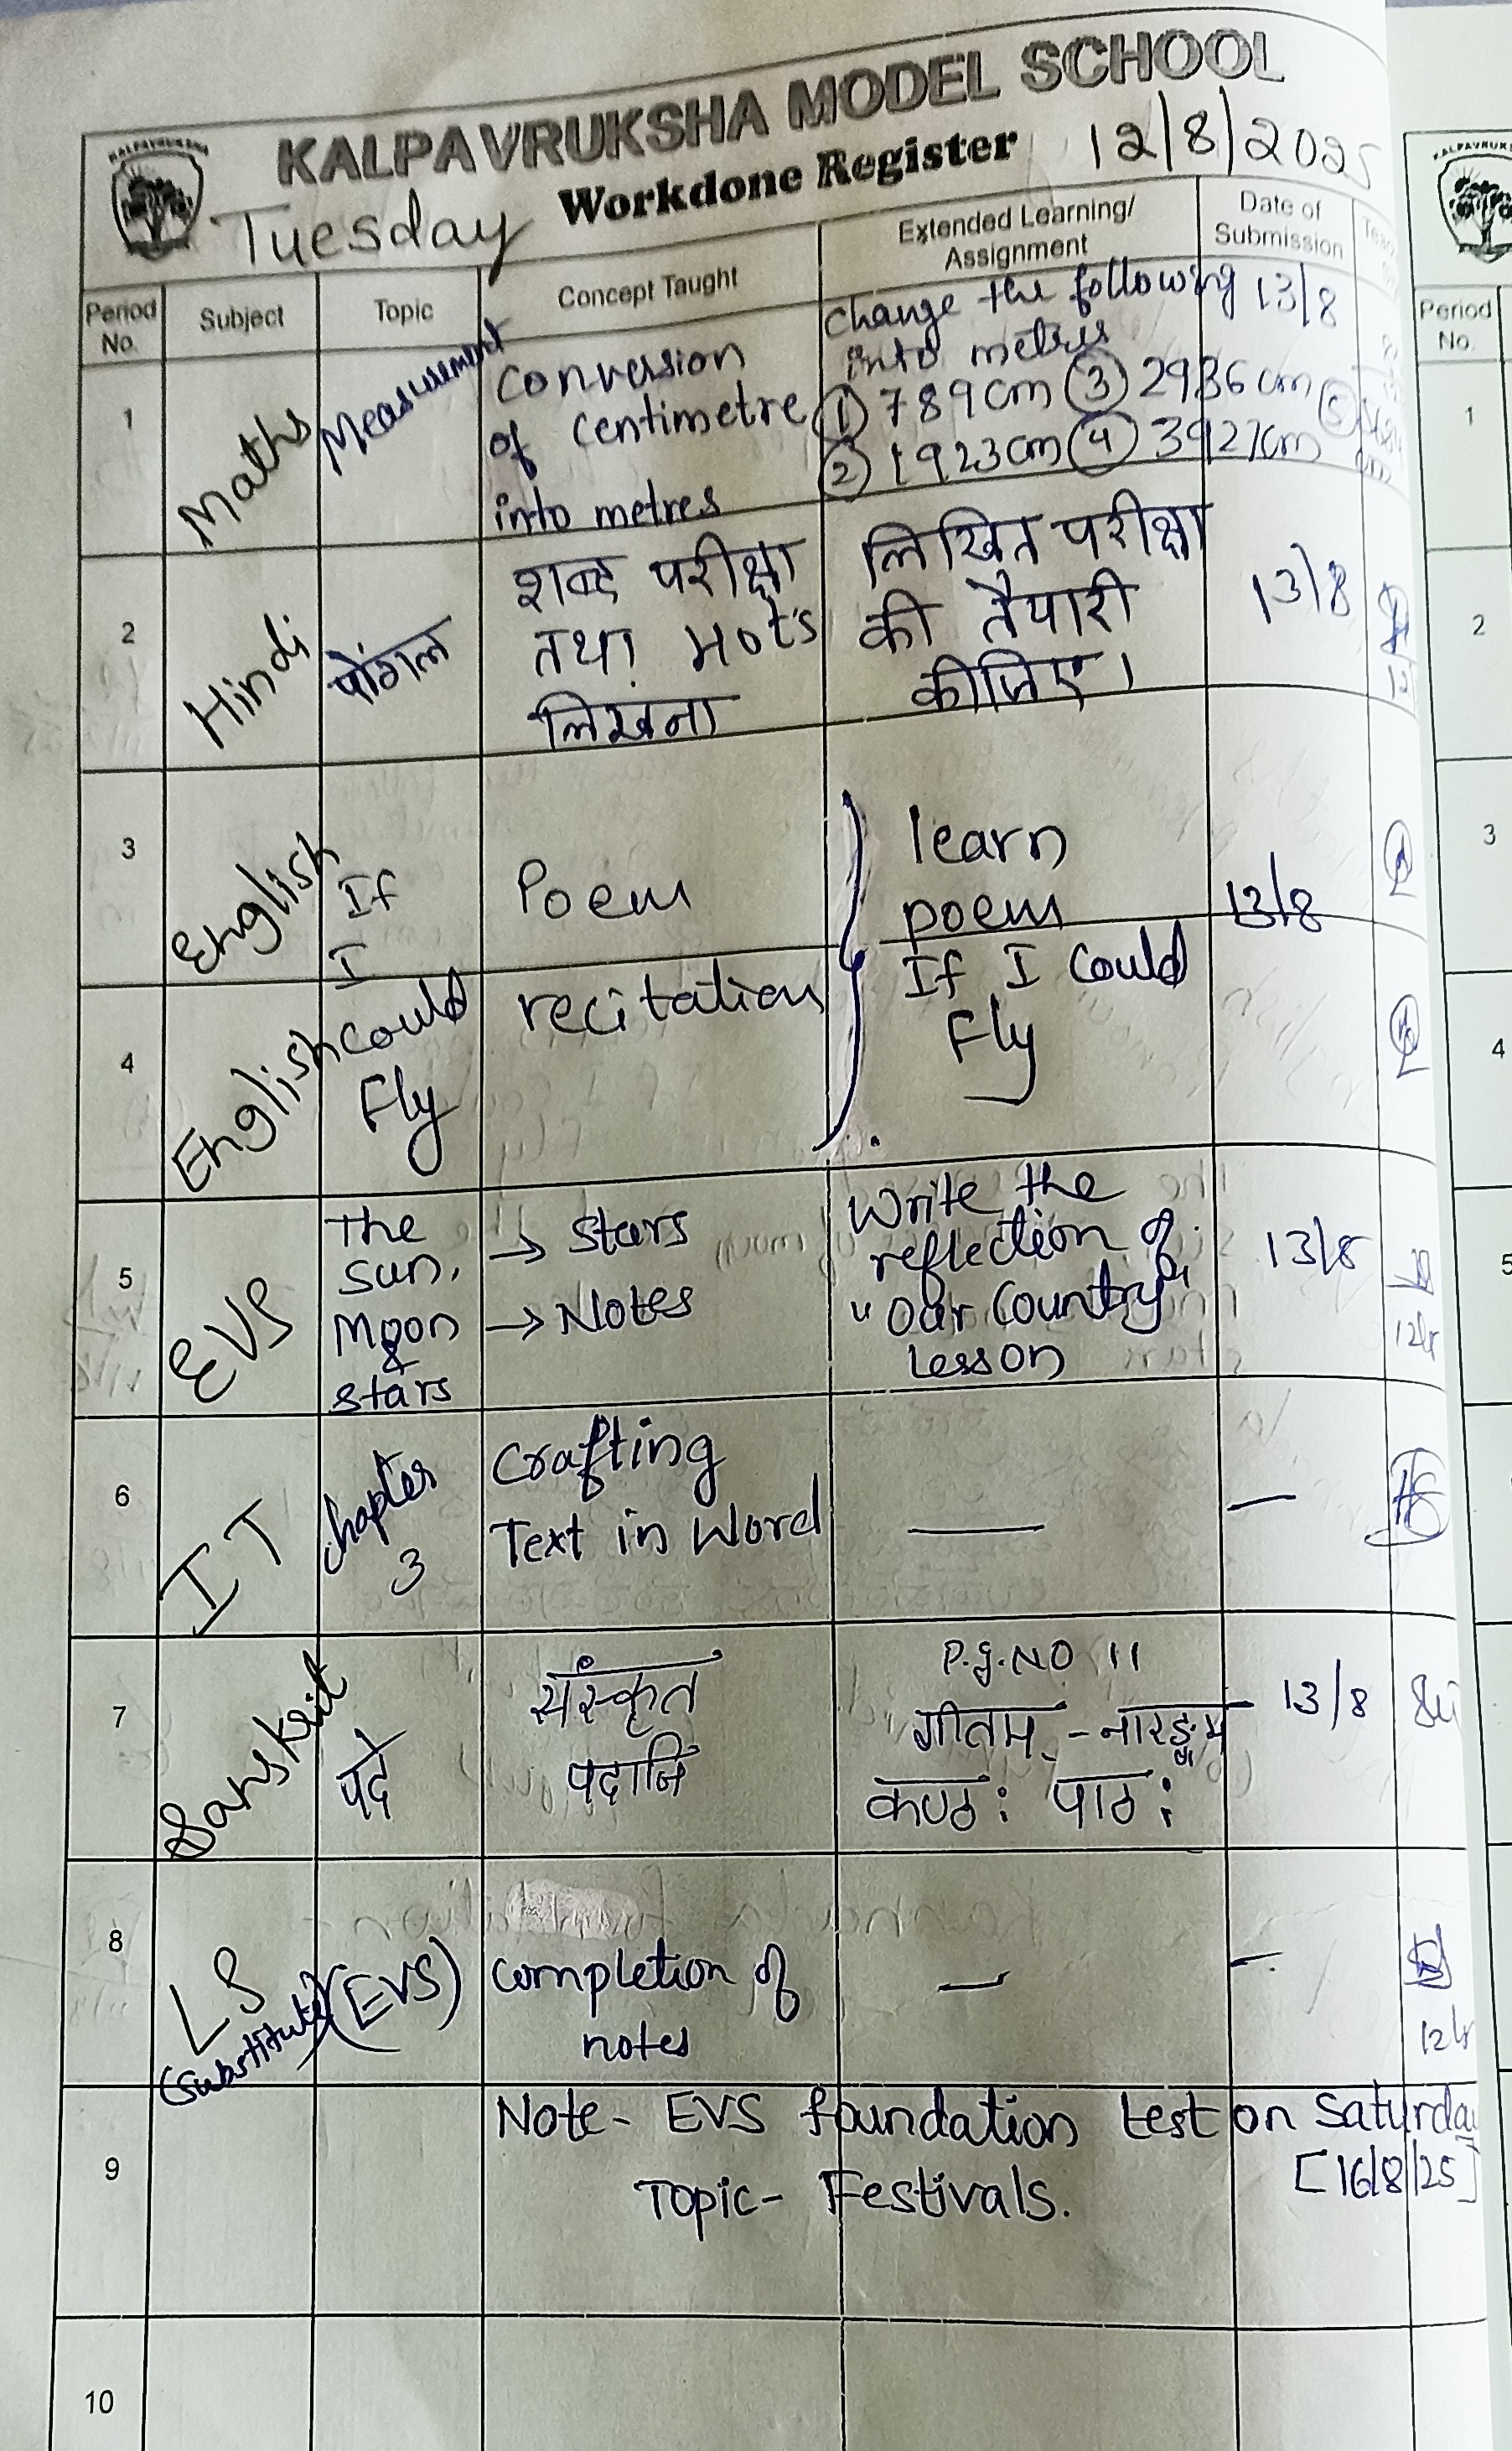 KALPAVRUKSHA MODEL SCHOOL
KALPAVRUKSHA
Workdone Register
12/8/2025
Tuesday
Period No.
Subject
Topic
Concept Taught
Extended Learning/
Assignment
Date of
Submission
1
Maths
Measurement
Conversion
of centimetre
into metres
change the following
into metres
① 789cm ③ 2936cm
② 1923cm ④ 3927cm
⑤
13/8
2
Hindi
पोंगल
शब्द परीक्षा
तथा Hot's
लिखना
लिखित परीक्षा
की तैयारी
कीजिए।
13/8
3
English
If
I
Poem
learn
poem
13/8
4
English
could
Fly
recitation
If I could
Fly
5
EVS
The
Sun,
Moon
&
stars
→ stars
→ Notes
Write the
reflection of
"Our Country"
Lesson
13/8
6
IT
chapter
3
Crafting
Text in Word
—
—
7
Sanskrit
पदे
संस्कृत
पदानि
P.g.NO 11
गीतम् - नारङ्गम्
कण्ठः पाठः
13/8
8
LS
(substitute)
(EVS)
completion of
notes
—
—
9
Note- EVS foundation test on Saturday
[16/8/25]
Topic- Festivals.
10
Period
No.
1
2
3
4
5